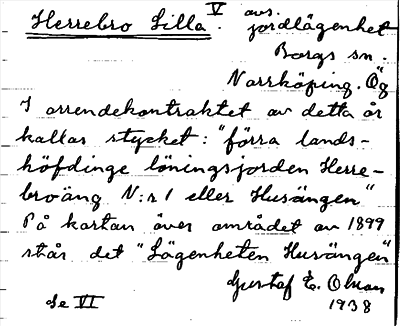 Herrebro Lilla. V avs. jordlägenhet
Borgs sn.
Norrköping. Ög
I arrendekontraktet av detta år
kallas stycket: "förra lands-
höfdinge löningsjorden Herre-
broäng N:r 1 eller Husängen"
På kartan över området av 1899
står det "Lägenheten Husängen"
Gustaf E. Olsson
Se VI 1938